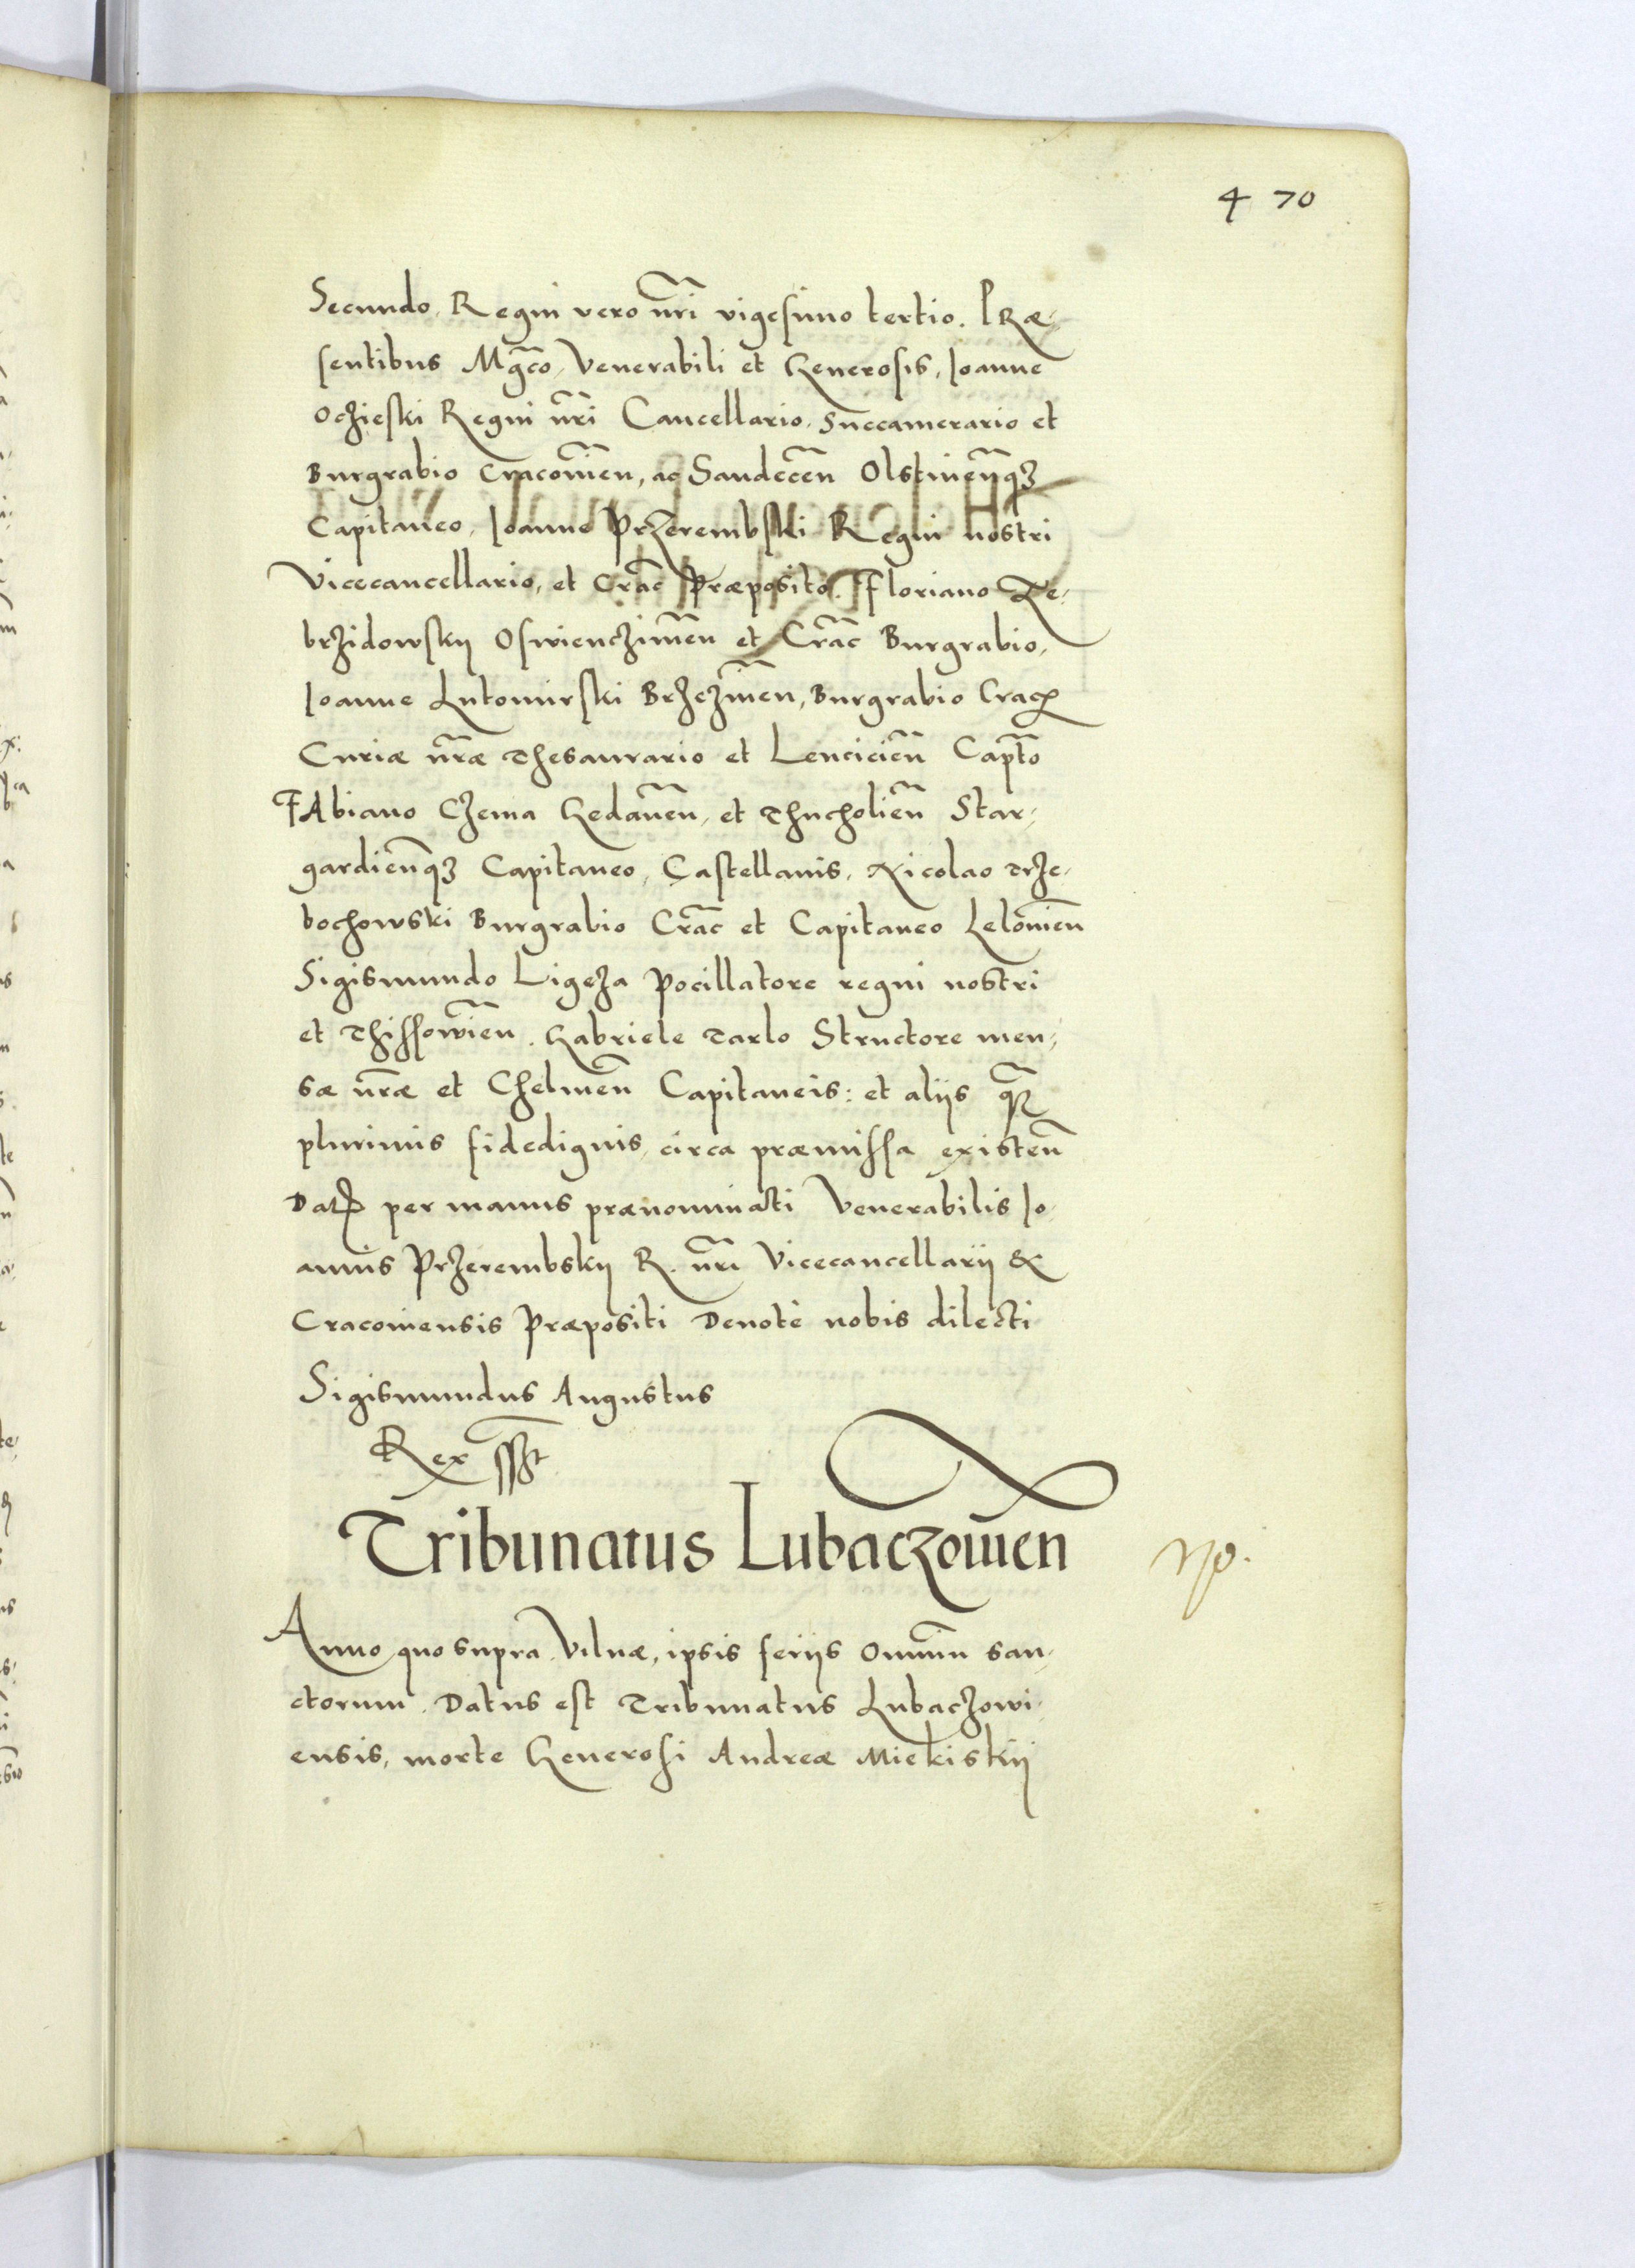 4 70
Secundo, Regni vero nri vigesimo tertio. PRæ-
sentibus Mgco, Venerabili et Generosis, Ioanne
Oczieski Regni nri Cancellario, Succamerario et
Burgrabio Cracovien, ac Sandecen Olstinenqz
Capitaneo, Ioanne Przerembski Regni nostri
Vicecancellario, et Crac Præposito. Floriano Ze-
brzidowskij Oswienczimen et Crac Burgrabio,
Ioanne Lutomirski Brzezinen, Burgrabio Crac,
Curiæ nræ Thesaurario et Lencicien Capto
FAbiano Czema Gedanen, et Thucholien Star-
gardienqz Capitaneo, Castellanis, Nicolao Trze-
bochowski Burgrabio Crac et Capitaneo Lelovien
Sigismundo Ligeza Pocillatore regni nostri
et Thissowien. Gabriele Tarlo Structore men-
sæ nræ et Chelmen Capitaneis: et aliis qz
plurimis fidedignis, circa præmissa existen
Dat per manus prænominati Venerabilis Io-
annis Przerembskij R. nri Vicecancellarij &
Cracoviensis Præpositi Devotè nobis dilecti
Sigismundus Augustus
Rex sst
Tribunatus Lubaczovien
Anno quo supra Vilnæ, ipsis feriis Omnim san-
ctorum. Datus est Tribunatus Lubaczowi-
ensis, morte Generosi Andreæ Miekiskij